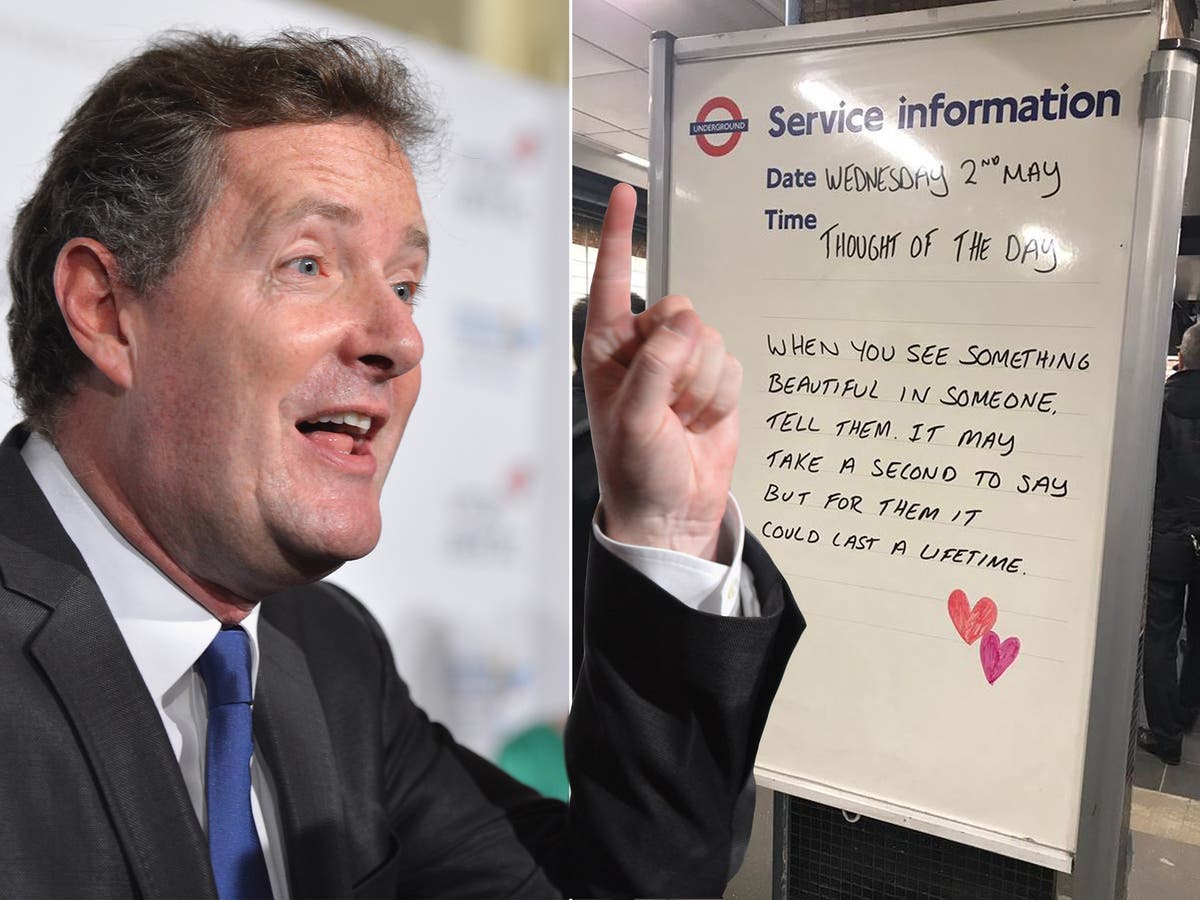 UNDERGROUND
Service information
Date WEDNESDAY 2ND MAY
Time
THOUGHT OF THE DAY
WHEN YOU SEE SOMETHING
BEAUTIFUL IN SOMEONE,
TELL THEM. IT MAY
TAKE A SECOND TO SAY
BUT FOR THEM IT
COULD LAST A LIFETIME.